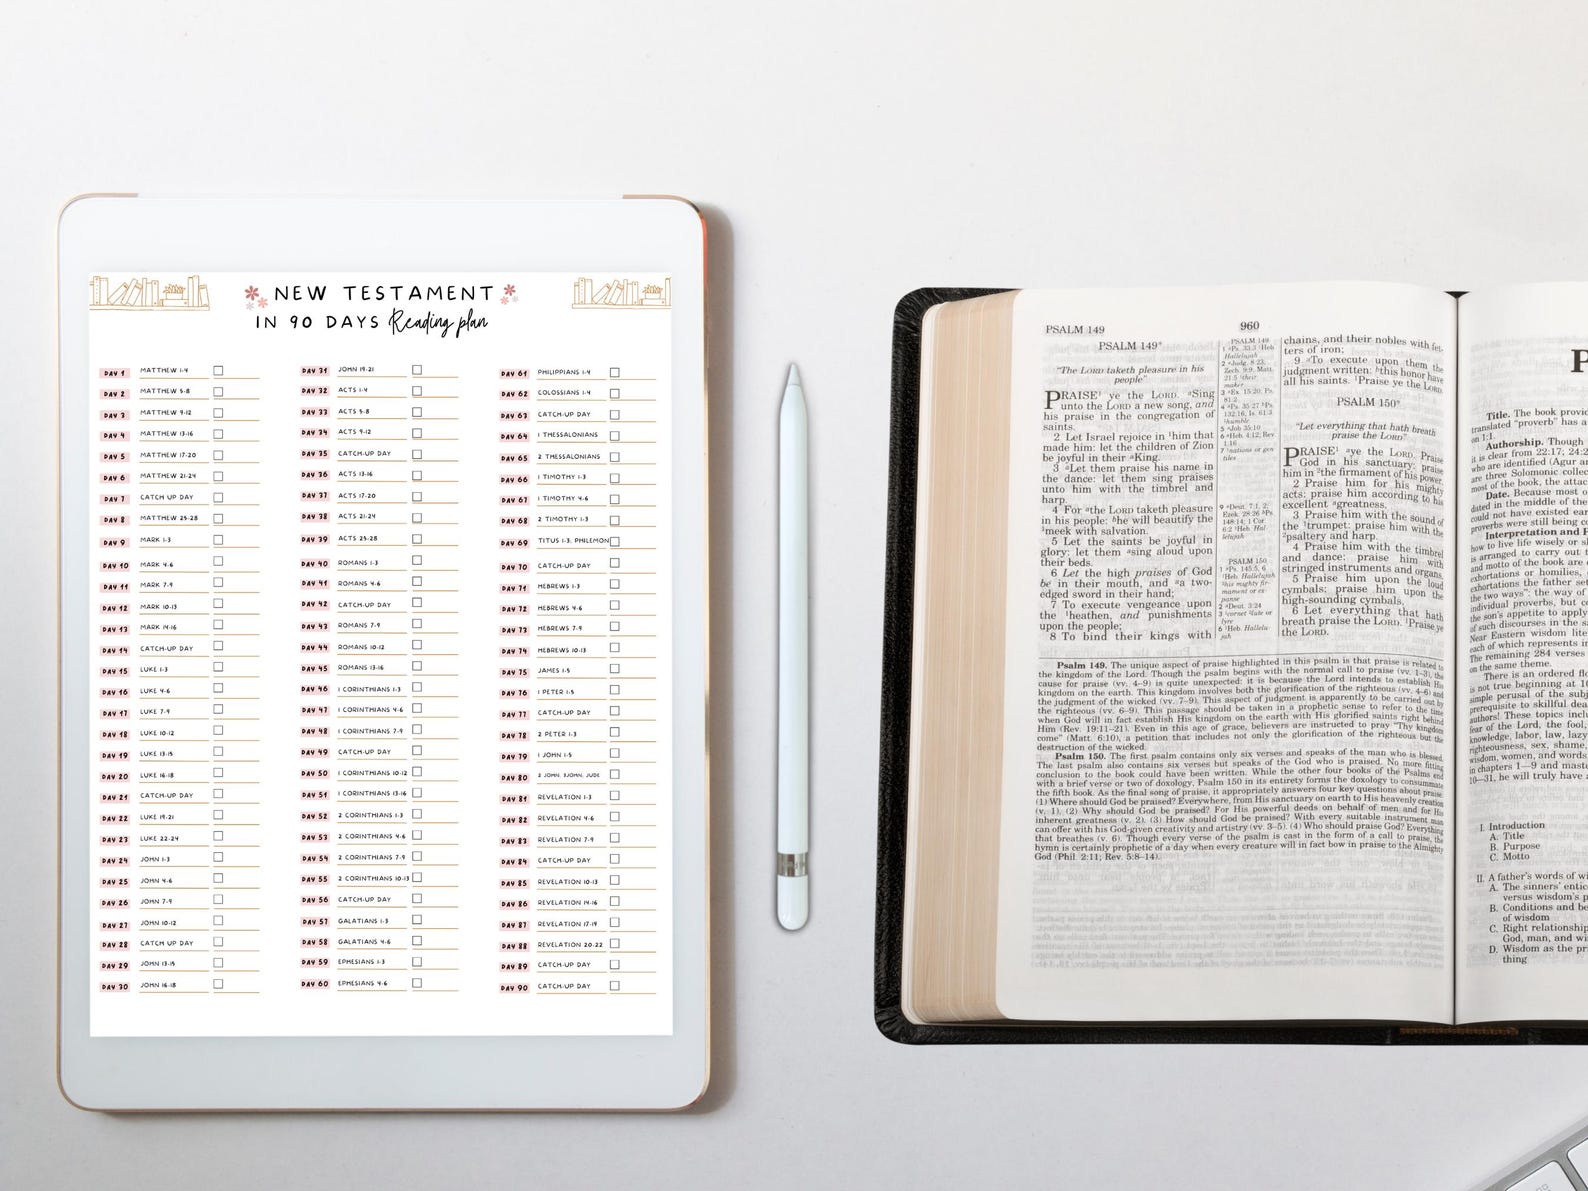 NEW TESTAMENT
IN 90 DAYS Reading plan
DAY 1 MATTHEW 1-4
DAY 2 MATTHEW 5-8
DAY 3 MATTHEW 9-12
DAY 4 MATTHEW 13-16
DAY 5 MATTHEW 17-20
DAY 6 MATTHEW 21-24
DAY 7 CATCH UP DAY
DAY 8 MATTHEW 25-28
DAY 9 MARK 1-3
DAY 10 MARK 4-6
DAY 11 MARK 7-9
DAY 12 MARK 10-13
DAY 13 MARK 14-16
DAY 14 CATCH-UP DAY
DAY 15 LUKE 1-3
DAY 16 LUKE 4-6
DAY 17 LUKE 7-9
DAY 18 LUKE 10-12
DAY 19 LUKE 13-15
DAY 20 LUKE 16-18
DAY 21 CATCH-UP DAY
DAY 22 LUKE 19-21
DAY 23 LUKE 22-24
DAY 24 JOHN 1-3
DAY 25 JOHN 4-6
DAY 26 JOHN 7-9
DAY 27 JOHN 10-12
DAY 28 CATCH UP DAY
DAY 29 JOHN 13-15
DAY 30 JOHN 16-18
DAY 31 JOHN 19-21
DAY 32 ACTS 1-4
DAY 33 ACTS 5-8
DAY 34 ACTS 9-12
DAY 35 CATCH-UP DAY
DAY 36 ACTS 13-16
DAY 37 ACTS 17-20
DAY 38 ACTS 21-24
DAY 39 ACTS 25-28
DAY 40 ROMANS 1-3
DAY 41 ROMANS 4-6
DAY 42 CATCH-UP DAY
DAY 43 ROMANS 7-9
DAY 44 ROMANS 10-12
DAY 45 ROMANS 13-16
DAY 46 1 CORINTHIANS 1-3
DAY 47 1 CORINTHIANS 4-6
DAY 48 1 CORINTHIANS 7-9
DAY 49 CATCH-UP DAY
DAY 50 1 CORINTHIANS 10-12
DAY 51 1 CORINTHIANS 13-16
DAY 52 2 CORINTHIANS 1-3
DAY 53 2 CORINTHIANS 4-6
DAY 54 2 CORINTHIANS 7-9
DAY 55 2 CORINTHIANS 10-13
DAY 56 CATCH-UP DAY
DAY 57 GALATIANS 1-3
DAY 58 GALATIANS 4-6
DAY 59 EPHESIANS 1-3
DAY 60 EPHESIANS 4-6
DAY 61 PHILIPPIANS 1-4
DAY 62 COLOSSIANS 1-4
DAY 63 CATCH-UP DAY
DAY 64 1 THESSALONIANS
DAY 65 2 THESSALONIANS
DAY 66 1 TIMOTHY 1-3
DAY 67 1 TIMOTHY 4-6
DAY 68 2 TIMOTHY 1-3
DAY 69 TITUS 1-3; PHILEMON
DAY 70 CATCH-UP DAY
DAY 71 HEBREWS 1-3
DAY 72 HEBREWS 4-6
DAY 73 HEBREWS 7-9
DAY 74 HEBREWS 10-13
DAY 75 JAMES 1-5
DAY 76 1 PETER 1-5
DAY 77 CATCH-UP DAY
DAY 78 2 PETER 1-3
DAY 79 1 JOHN 1-5
DAY 80 2 JOHN, 3JOHN, JUDE
DAY 81 REVELATION 1-3
DAY 82 REVELATION 4-6
DAY 83 REVELATION 7-9
DAY 84 CATCH-UP DAY
DAY 85 REVELATION 10-13
DAY 86 REVELATION 14-16
DAY 87 REVELATION 17-19
DAY 88 REVELATION 20-22
DAY 89 CATCH-UP DAY
DAY 90 CATCH-UP DAY
PSALM 149
960
PSALM 149
"The LORD taketh pleasure in his
people"
PRAISE ye the LORD. Sing
unto the LORD a new song, and
his praise in the congregation of
saints.
2 Let Israel rejoice in him that
made him: let the children of Zion
be joyful in their King.
3 Let them praise his name in
the dance: let them sing praises
unto him with the timbrel and
harp.
4 For the LORD taketh pleasure
in his people: he will beautify the
meek with salvation.
5 Let the saints be joyful in
glory: let them sing aloud upon
their beds.
6 Let the high praises of God
be in their mouth, and a two-
edged sword in their hand;
7 To execute vengeance upon
the heathen, and punishments
upon the people;
8 To bind their kings with
PSALM 149
PSALM 150
chains, and their nobles with fet-
ters of iron;
9 To execute upon them the
judgment written: this honor have
all his saints. Praise ye the LORD.
PSALM 150
"Let everything that hath breath
praise the LORD"
PRAISE ye the LORD. Praise
God in his sanctuary: praise
him in the firmament of his power.
2 Praise him for his mighty
acts: praise him according to his
excellent greatness.
3 Praise him with the sound of
the trumpet: praise him with the
psaltery and harp.
4 Praise him with the timbrel
and dance: praise him with
stringed instruments and organs.
5 Praise him upon the loud
cymbals: praise him upon the
high-sounding cymbals.
6 Let everything that hath
breath praise the LORD. Praise ye
the LORD.
Psalm 149. The unique aspect of praise highlighted in this psalm is that praise is related to
the kingdom of the Lord. Though the psalm begins with the normal call to praise (vv. 1–3), the
cause for praise (vv. 4–9) is quite unexpected: it is because the Lord intends to establish His
kingdom on the earth. This kingdom involves both the glorification of the righteous (vv. 4–6) and
the judgment of the wicked (vv. 7–9). This aspect of judgment is apparently to be carried out by
the righteous (vv. 6–9). This passage should be taken in a prophetic sense to refer to the time
when God will in fact establish His kingdom on the earth with His glorified saints right behind
Him (Rev. 19:11–21). Even in this age of grace, believers are instructed to pray "Thy kingdom
come" (Matt. 6:10), a petition that includes not only the glorification of the righteous but the
destruction of the wicked.
Psalm 150. The first psalm contains only six verses and speaks of the man who is blessed.
The last psalm also contains six verses but speaks of the God who is praised. No more fitting
conclusion to the book could have been written. While the other four books of the Psalms end
with a brief verse or two of doxology, Psalm 150 in its entirety forms the doxology to consummate
the fifth book. As the final song of praise, it appropriately answers four key questions about praise:
(1) Where should God be praised? Everywhere, from His sanctuary on earth to His heavenly creation
(v. 1). (2) Why should God be praised? For His powerful deeds on behalf of men and for His
inherent greatness (v. 2). (3) How should God be praised? With every suitable instrument man
can offer with his God-given creativity and artistry (vv. 3–5). (4) Who should praise God? Everything
that breathes (v. 6). Though every verse of the psalm is cast in the form of a call to praise, the
hymn is certainly prophetic of a day when every creature will in fact bow in praise to the Almighty
God (Phil. 2:11; Rev. 5:8–14).
P
Title. The book provid
translated "proverb" has a
on 1:1.
Authorship. Though
it is clear from 22:17; 24:2
who are identified (Agur an
are three Solomonic collec
most of the book, the attac
Date. Because most o
dated in the middle of the
could not have existed ear
proverbs were still being co
Interpretation and P
how to live life wisely or sk
is arranged to carry out t
and motto of the book are
exhortations or homilies,
the two ways": the way of
individual proverbs, but co
the son's appetite to apply
of such discourses in the sa
Near Eastern wisdom lite
each of which represents in
The remaining 284 verses
on the same theme.
There is an ordered flo
is not true beginning at 10
simple perusal of the subj
prerequisite to skillful dea
authors! These topics inclu
fear of the Lord, the fool,
knowledge, labor, law, lazy
righteousness, sex, shame,
wisdom, women, and words
in chapters 1—9 and maste
10—31, he will truly have a
I. Introduction
A. Title
B. Purpose
C. Motto
II. A father's words of wi
A. The sinners' entic
versus wisdom's p
B. Conditions and be
of wisdom
C. Right relationship
God, man, and wi
D. Wisdom as the pri
thing